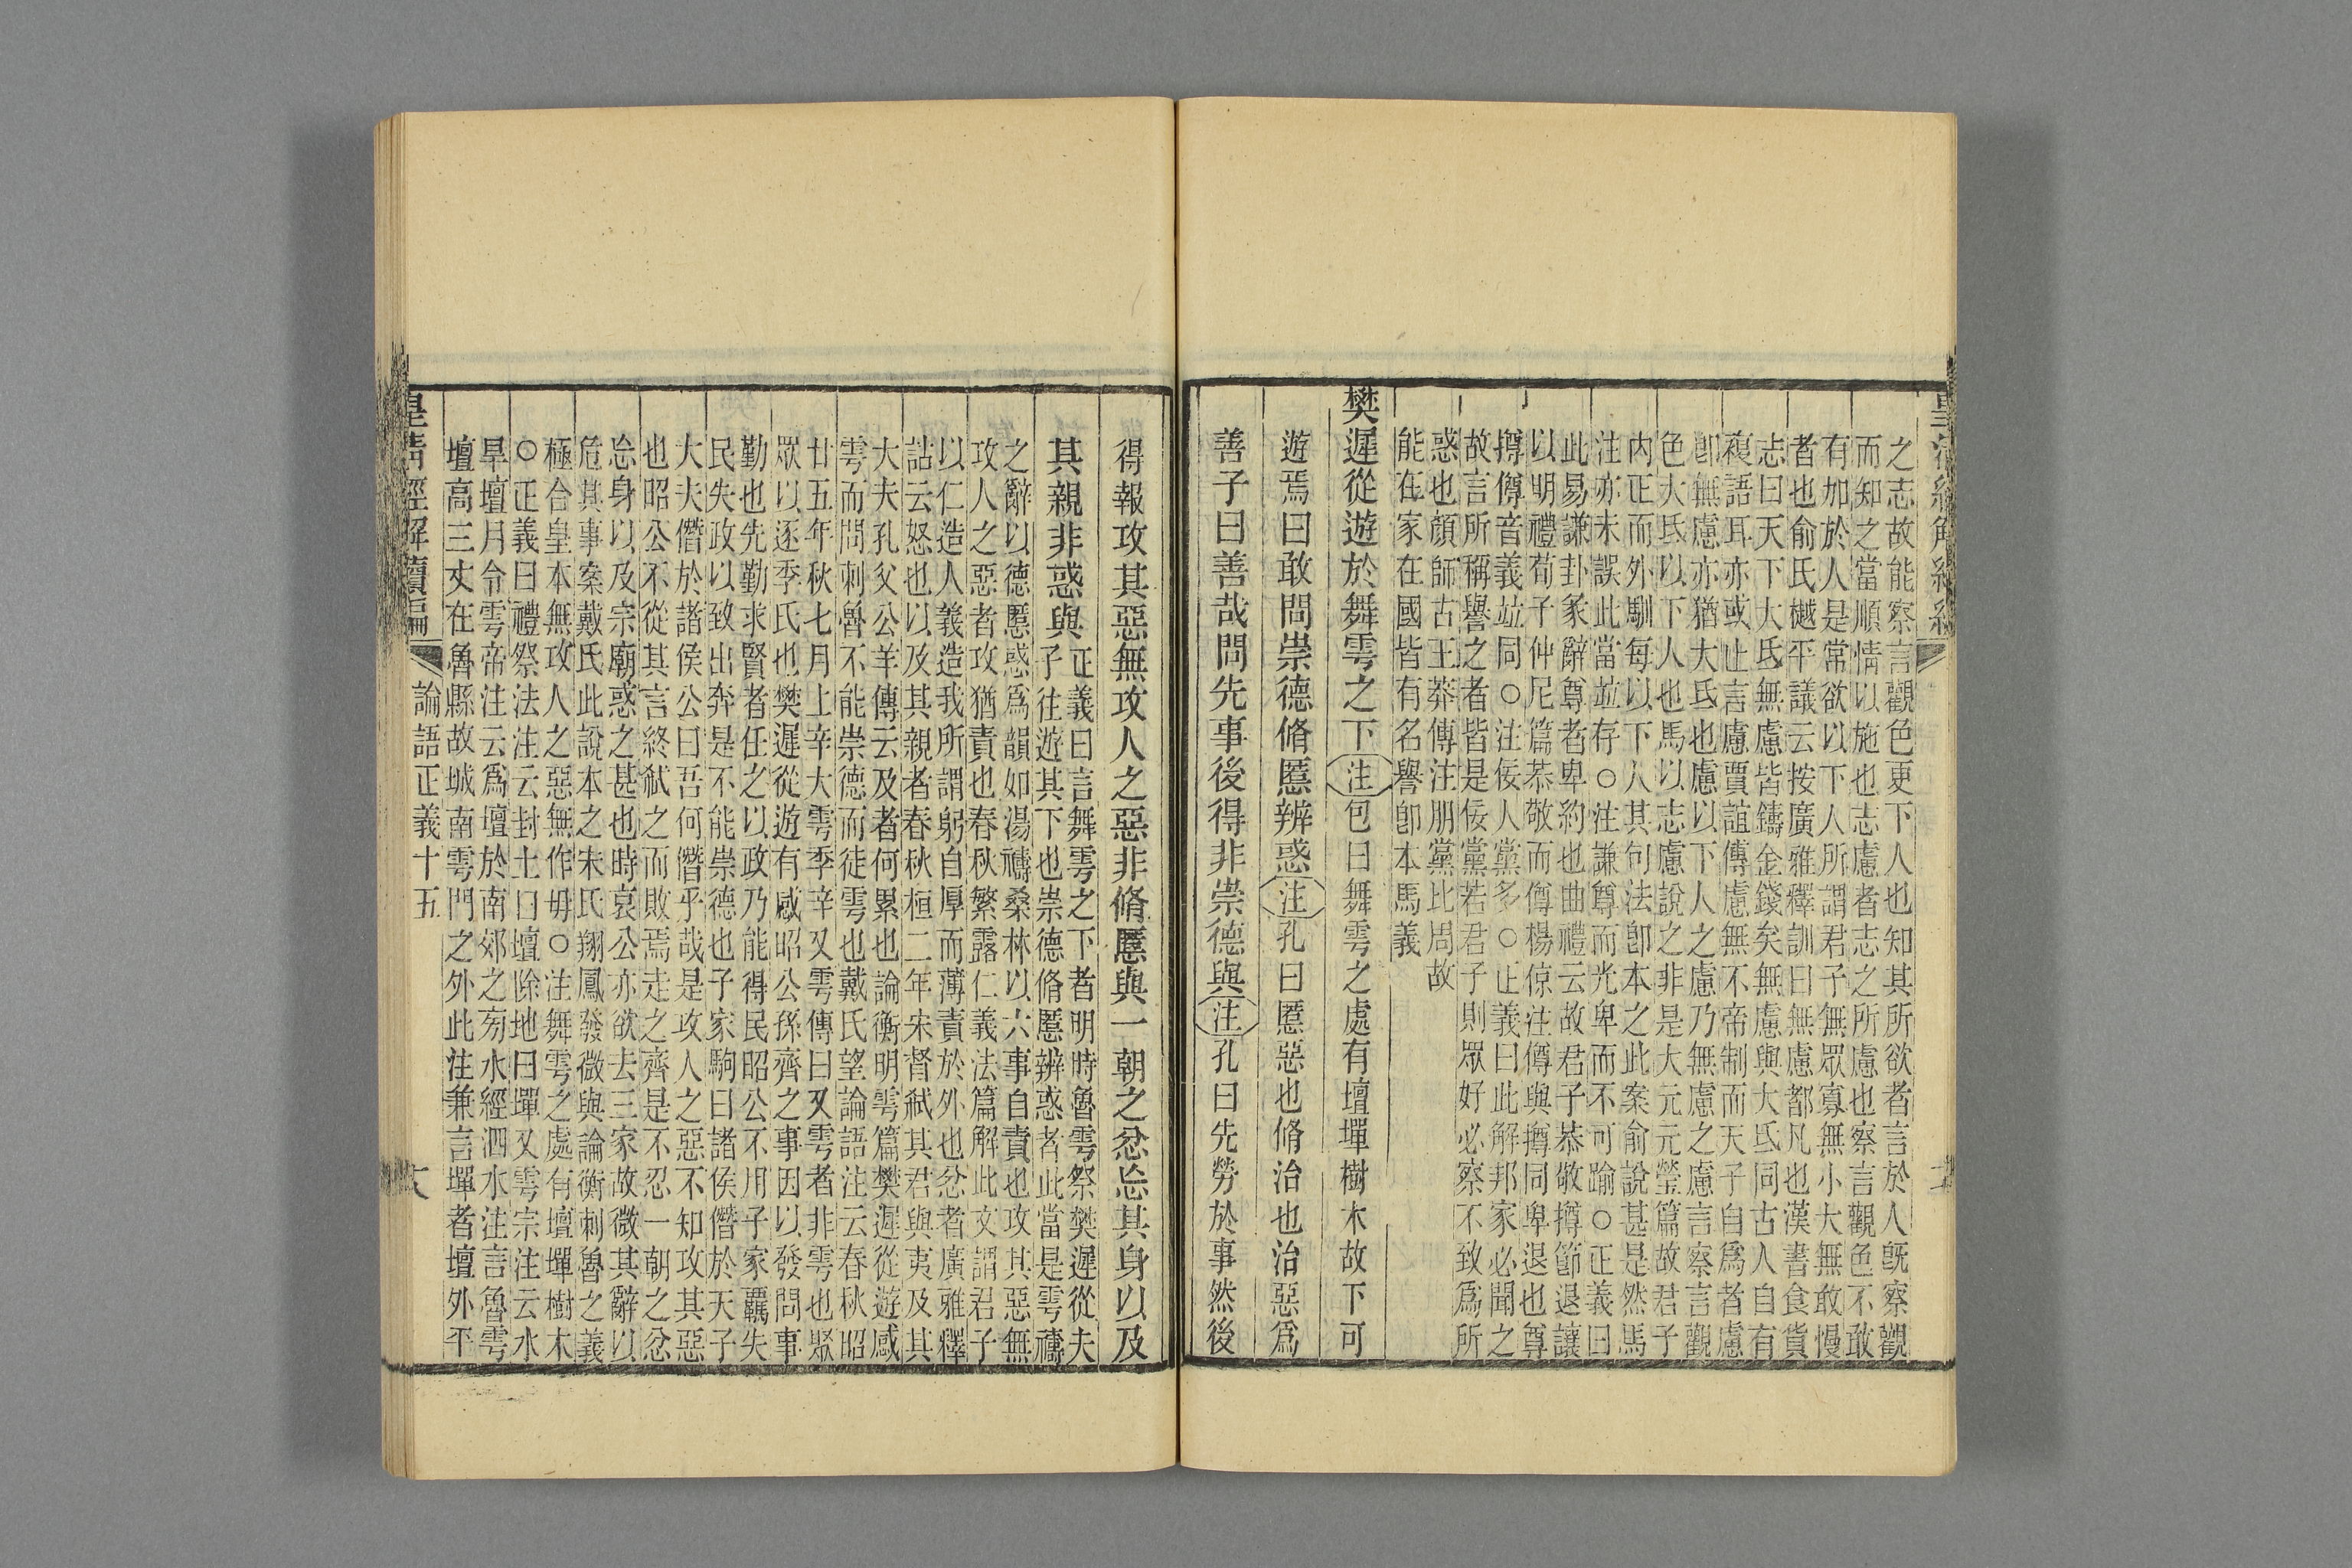 皇清經解續編
之志故能察言觀色更下人也知其所欲者言於人旣察觀
而知之當順情以施也志慮者志之所慮也察言觀色不敢
有加於人是常欲以下人所謂君子無眾寡無小大無敢慢
者也俞氏樾平議云按廣雅釋訓曰無慮都凡也漢書食貨
志曰天下大氐無慮皆鑄金錢矣無慮與大氐同古人自有
複語耳亦或止言慮賈誼傳慮無不帝制而天子自爲者慮
卽無慮亦猶大氐也慮以下人之慮乃無慮之慮言察言觀
色大氐以下人也馬以志慮說之非是大元元瑩篇故君子
內正而外馴每以下人其句法卽本之此案俞說甚是然馬
注亦未誤此當竝存○注謙尊而光卑而不可踰○正義曰
此易謙卦彖辭尊者卑約也曲禮云故君子恭敬撙節退讓
以明禮荀子仲尼篇恭敬而僔楊倞注僔與撙同卑退也尊
撙僔音義竝同○注佞人黨多○正義曰此解邦家必聞之
故言所稱譽之者皆是佞黨若君子則眾好必察不致爲所
惑也顏師古王莽傳注朋黨比周故
能在家在國皆有名譽卽本馬義
樊遲從遊於舞雩之下注包曰舞雩之處有壇墠樹木故下可
遊焉曰敢問崇德脩慝辨惑注孔曰慝惡也脩治也治惡爲
善子曰善哉問先事後得非崇德與注孔曰先勞於事然後
得報攻其惡無攻人之惡非脩慝與一朝之忿忘其身以及
其親非惑與正義曰言舞雩之下者明時魯雩祭樊遲從夫
子往遊其下也崇德脩慝辨惑者此當是雩禱
之辭以德慝惑爲韻如湯禱桑林以六事自責也攻其惡無
攻人之惡者攻猶責也春秋繁露仁義法篇解此文謂君子
以仁造人義造我所謂躬自厚而薄責於外也忿者廣雅釋
詁云怒也以及其親者春秋桓二年宋督弒其君與夷及其
大夫孔父公羊傳云及者何累也論衡明雩篇樊遲從遊感
雩而問刺魯不能崇德而徒雩也戴氏望論語注云春秋昭
廿五年秋七月上辛大雩季辛又雩傳曰又雩者非雩也聚
眾以逐季氏也樊遲從遊有感昭公孫齊之事因以發問事
勤也先勤求賢者任之以政乃能得民昭公不用子家羈失
民失政以致出奔是不能崇德也子家駒曰諸侯僭於天子
大夫僭於諸侯公曰吾何僭乎哉是攻人之惡不知攻其惡
也昭公不從其言終弒之而敗焉走之齊是不忍一朝之忿
忘身以及宗廟惑之甚也時哀公亦欲去三家故微其辭以
危其事案戴氏此說本之宋氏翔鳳發微與論衡刺魯之義
極合皇本無攻人之惡無作毋○注舞雩之處有壇墠樹木
○正義曰禮祭法注云封土曰壇除地曰墠又雩宗注云水
旱壇月令雩帝注云爲壇於南郊之旁水經泗水注言魯雩
壇高三丈在魯縣故城南雩門之外此注兼言墠者壇外平
皇清經解續編 論語正義十五